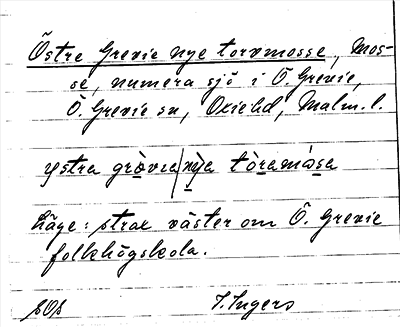 Östre Grevie nye torvmosse, Mos-
se, numera sjö i Ö. Grevie,
Ö. Grevie sn, Oxie hd, Malm. l.
ystra gròvıa nỳa tòramåsa
Läge: strax väster om Ö. Grevie
folkhögskola.
I. Ingers